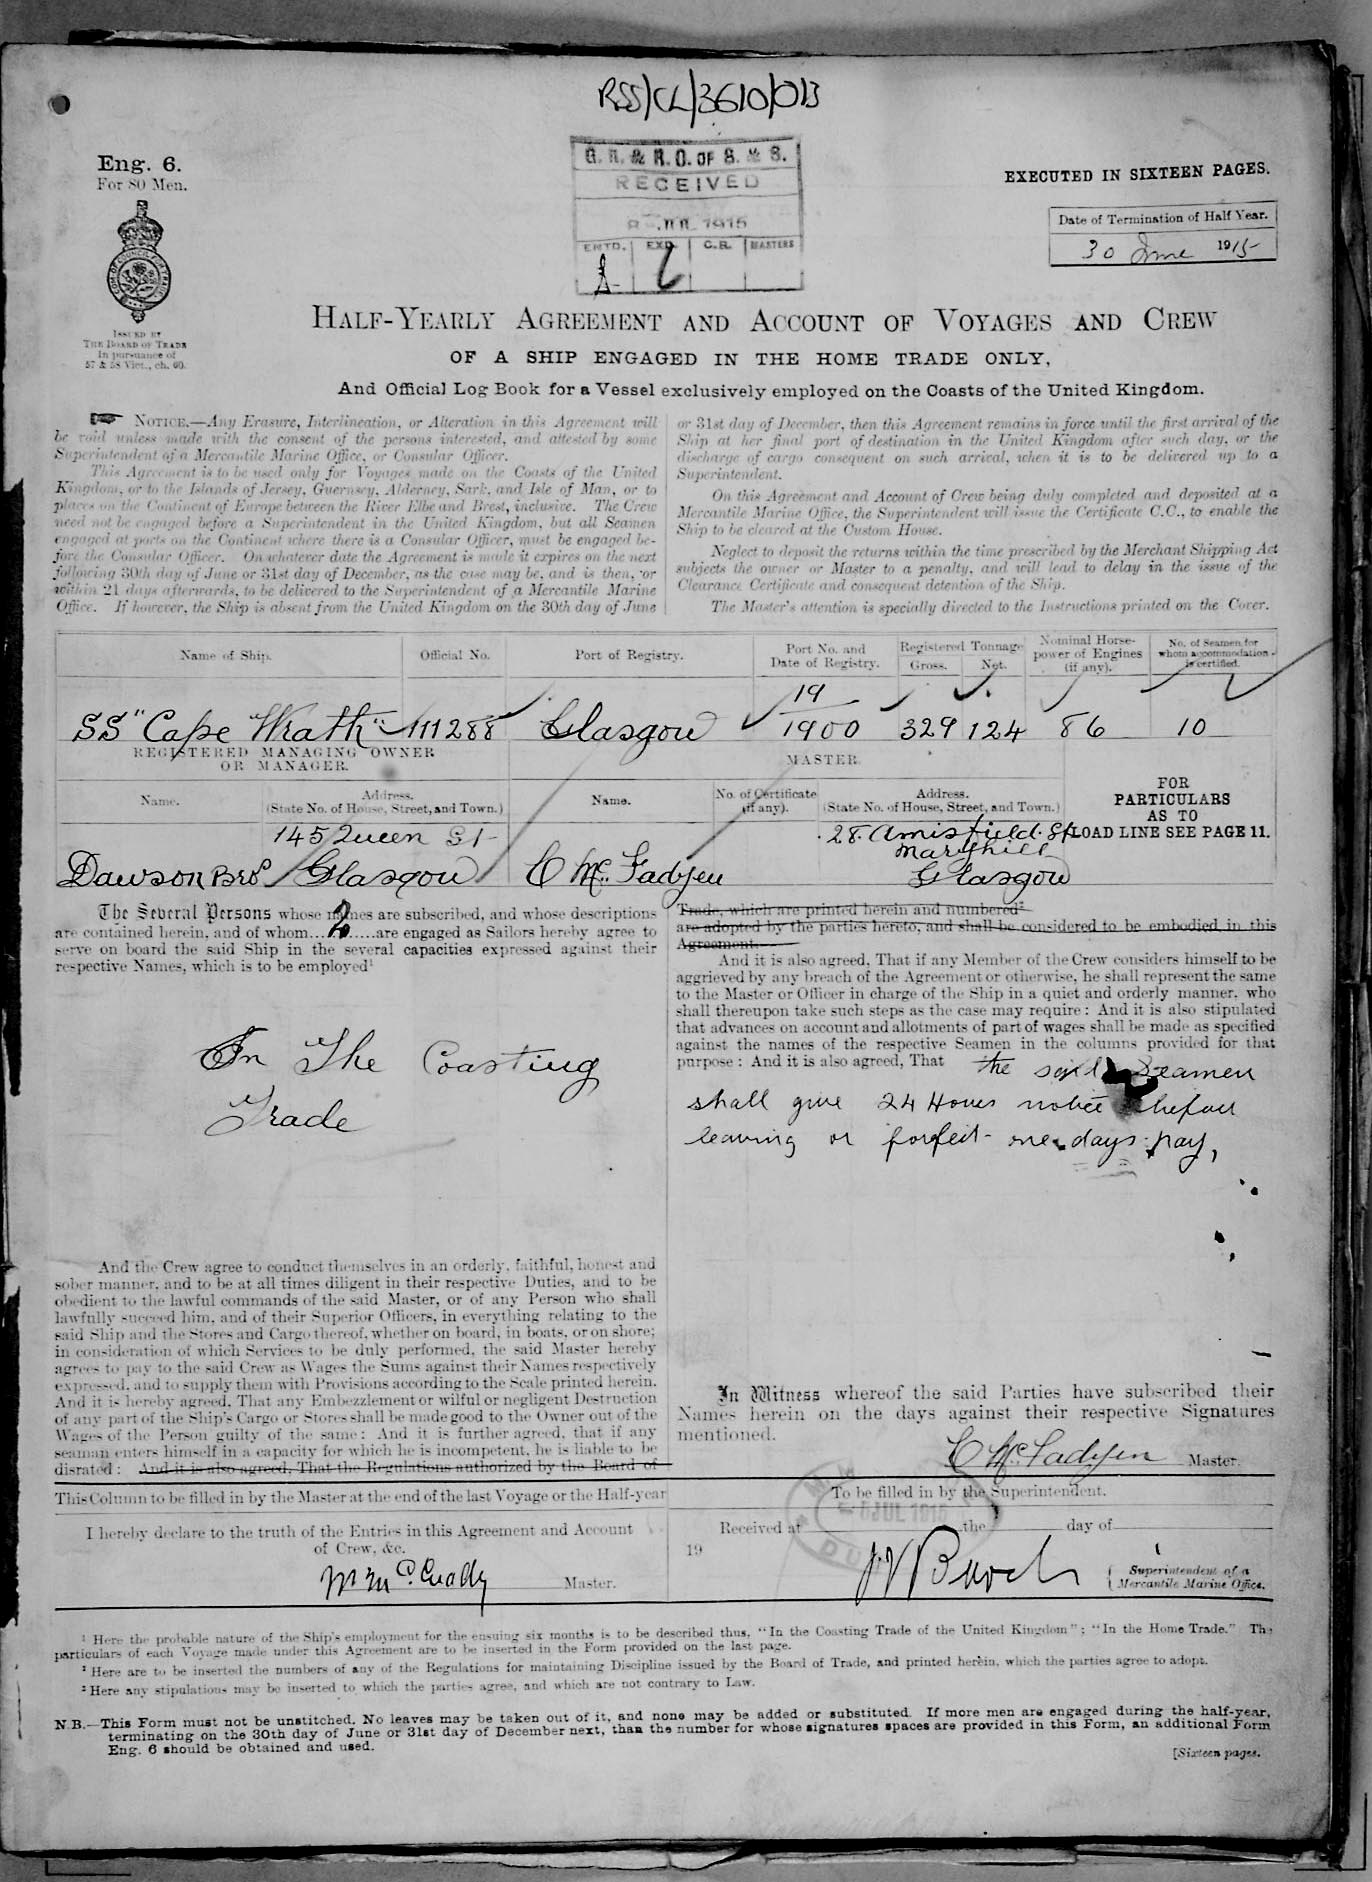 RSS/CL/3610/013
Eng. 6.
For 80 Men.
ISSUED BY
THE BOARD OF TRADE
In pursuance of
57 & 58 Vict., ch. 60.
G. R. & R.O. OF S. & S.
RECEIVED
8 JUL 1915
ENTD. EXD. C.R. MASTERS
EXECUTED IN SIXTEEN PAGES.
Date of Termination of Half Year.
30 June 1915
HALF-YEARLY AGREEMENT AND ACCOUNT OF VOYAGES AND CREW
OF A SHIP ENGAGED IN THE HOME TRADE ONLY,
And Official Log Book for a Vessel exclusively employed on the Coasts of the United Kingdom.
NOTICE.—Any Erasure, Interlineation, or Alteration in this Agreement will
be void unless made with the consent of the persons interested, and attested by some
Superintendent of a Mercantile Marine Office, or Consular Officer.
This Agreement is to be used only for Voyages made on the Coasts of the United
Kingdom, or to the Islands of Jersey, Guernsey, Alderney, Sark, and Isle of Man, or to
places on the Continent of Europe between the River Elbe and Brest, inclusive. The Crew
need not be engaged before a Superintendent in the United Kingdom, but all Seamen
engaged at ports on the Continent where there is a Consular Officer, must be engaged be-
fore the Consular Officer. On whatever date the Agreement is made it expires on the next
following 30th day of June or 31st day of December, as the case may be, and is then, or
within 21 days afterwards, to be delivered to the Superintendent of a Mercantile Marine
Office. If however, the Ship is absent from the United Kingdom on the 30th day of June
or 31st day of December, then this Agreement remains in force until the first arrival of the
Ship at her final port of destination in the United Kingdom after such day, or the
discharge of cargo consequent on such arrival, when it is to be delivered up to a
Superintendent.
On this Agreement and Account of Crew being duly completed and deposited at a
Mercantile Marine Office, the Superintendent will issue the Certificate C.C., to enable the
Ship to be cleared at the Custom House.
Neglect to deposit the returns within the time prescribed by the Merchant Shipping Act
subjects the owner or Master to a penalty, and will lead to delay in the issue of the
Clearance Certificate and consequent detention of the Ship.
The Master's attention is specially directed to the Instructions printed on the Cover.
Name of Ship. Official No. Port of Registry. Port No. and Date of Registry. Registered Tonnage Gross. Net. Nominal Horse-power of Engines (if any). No. of Seamen for whom accommodation is certified.
SS "Cape Wrath" 111288 Glasgow 19/1900 329 124 86 10
REGISTERED MANAGING OWNER
OR MANAGER.
MASTER.
Name. Address. (State No. of House, Street, and Town.) Name. No. of Certificate (if any). Address. (State No. of House, Street, and Town.)
FOR
PARTICULARS
AS TO
LOAD LINE SEE PAGE 11.
145 Queen St
Dawson Bros Glasgow
C McFadyen
28 Amisfield St
Maryhill
Glasgow
The Several Persons whose names are subscribed, and whose descriptions
are contained herein, and of whom 2 are engaged as Sailors hereby agree to
serve on board the said Ship in the several capacities expressed against their
respective Names, which is to be employed¹
In The Coasting
Trade
And the Crew agree to conduct themselves in an orderly, faithful, honest and
sober manner, and to be at all times diligent in their respective Duties, and to be
obedient to the lawful commands of the said Master, or of any Person who shall
lawfully succeed him, and of their Superior Officers, in everything relating to the
said Ship and the Stores and Cargo thereof, whether on board, in boats, or on shore;
in consideration of which Services to be duly performed, the said Master hereby
agrees to pay to the said Crew as Wages the Sums against their Names respectively
expressed, and to supply them with Provisions according to the Scale printed herein.
And it is hereby agreed, That any Embezzlement or wilful or negligent Destruction
of any part of the Ship's Cargo or Stores shall be made good to the Owner out of the
Wages of the Person guilty of the same: And it is further agreed, that if any
seaman enters himself in a capacity for which he is incompetent, he is liable to be
disrated: And it is also agreed, That the Regulations authorized by the Board of
Trade, which are printed herein and numbered²
are adopted by the parties hereto, and shall be considered to be embodied in this
Agreement.
And it is also agreed, That if any Member of the Crew considers himself to be
aggrieved by any breach of the Agreement or otherwise, he shall represent the same
to the Master or Officer in charge of the Ship in a quiet and orderly manner, who
shall thereupon take such steps as the case may require: And it is also stipulated
that advances on account and allotments of part of wages shall be made as specified
against the names of the respective Seamen in the columns provided for that
purpose: And it is also agreed, That the said Seamen
shall give 24 Hours notice before
leaving or forfeit one days pay,
In Witness whereof the said Parties have subscribed their
Names herein on the days against their respective Signatures
mentioned.
C McFadyen Master.
This Column to be filled in by the Master at the end of the last Voyage or the Half-year
I hereby declare to the truth of the Entries in this Agreement and Account
of Crew, &c.
Master.
To be filled in by the Superintendent.
Received at the day of
19
JUL 1915
Superintendent of a
Mercantile Marine Office.
¹ Here the probable nature of the Ship's employment for the ensuing six months is to be described thus, "In the Coasting Trade of the United Kingdom"; "In the Home Trade." The
particulars of each Voyage made under this Agreement are to be inserted in the Form provided on the last page.
² Here are to be inserted the numbers of any of the Regulations for maintaining Discipline issued by the Board of Trade, and printed herein, which the parties agree to adopt.
³ Here any stipulations may be inserted to which the parties agree, and which are not contrary to Law.
N.B.—This Form must not be unstitched. No leaves may be taken out of it, and none may be added or substituted. If more men are engaged during the half-year,
terminating on the 30th day of June or 31st day of December next, than the number for whose signatures spaces are provided in this Form, an additional Form
Eng. 6 should be obtained and used.
[Sixteen pages.